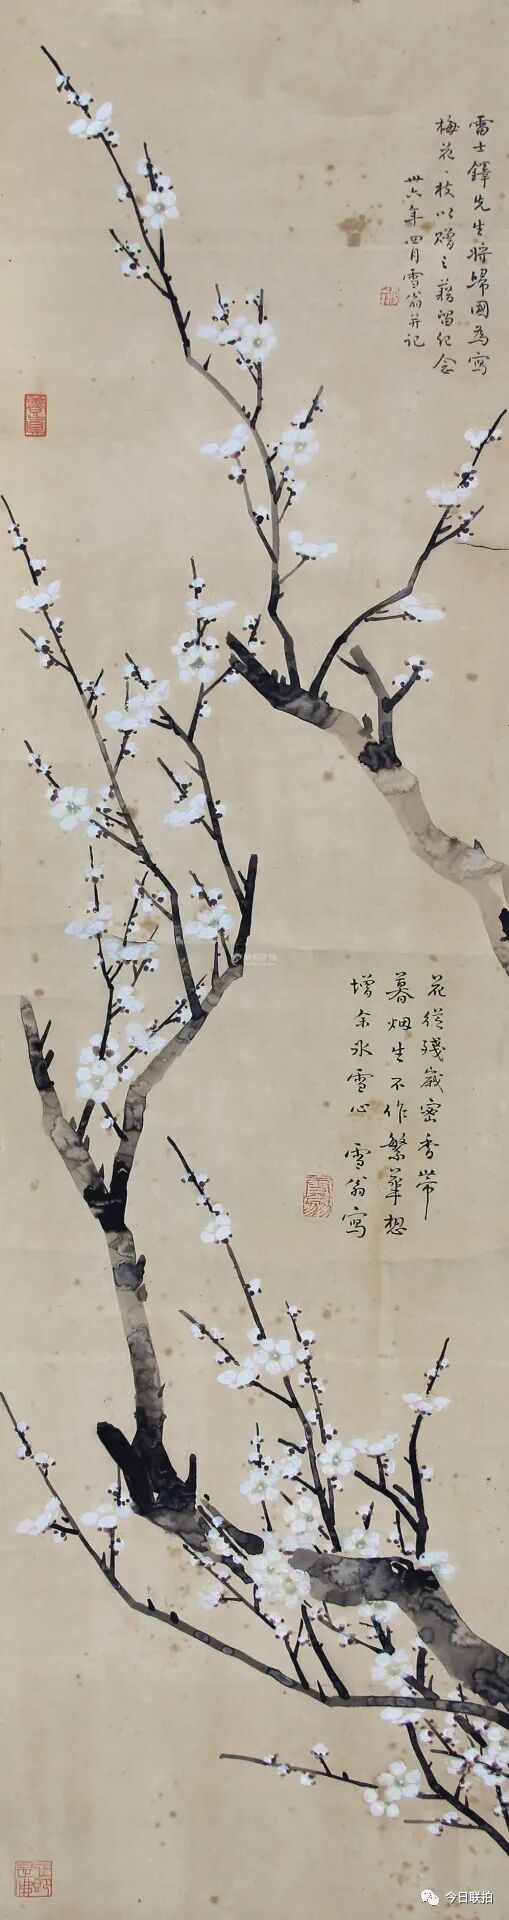 雷士鐸先生將歸國為寫
梅花一枝以贈之藉留紀念
卅六年四月雪翁并記
花從殘歲密香帶
暮烟生不作繁華想
增余冰雪心 雪翁寫
今日联拍